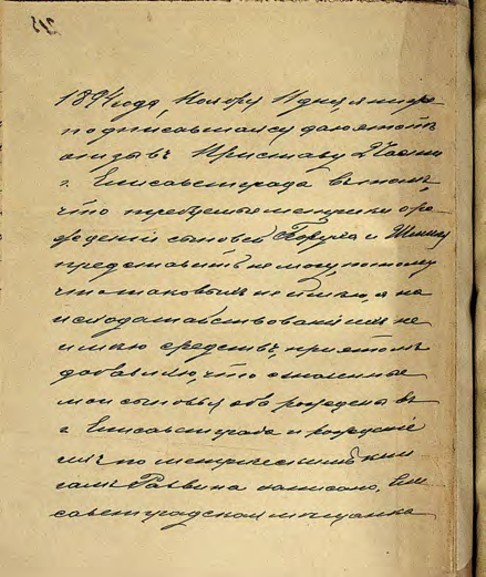 1894 года, Ноября 11 дня, я ниже
подписавшаяся даю этотъ
отзывъ Приставу 2 Части
г. Елисаветграда въ томъ,
что требуемые метрики о ро-
жденіи сыновей и
представить не могу, потому
что таковыхъ не имѣю, а на
исходатайствованіе ихъ не
имѣю средствъ, при этомъ
добавляю, что означенные
мои сыновья оба рождены въ
г. Елисаветградѣ и рожденіе
ихъ по метрическимъ кни
гамъ Раввина записано, Ели
саветградская мѣщанка